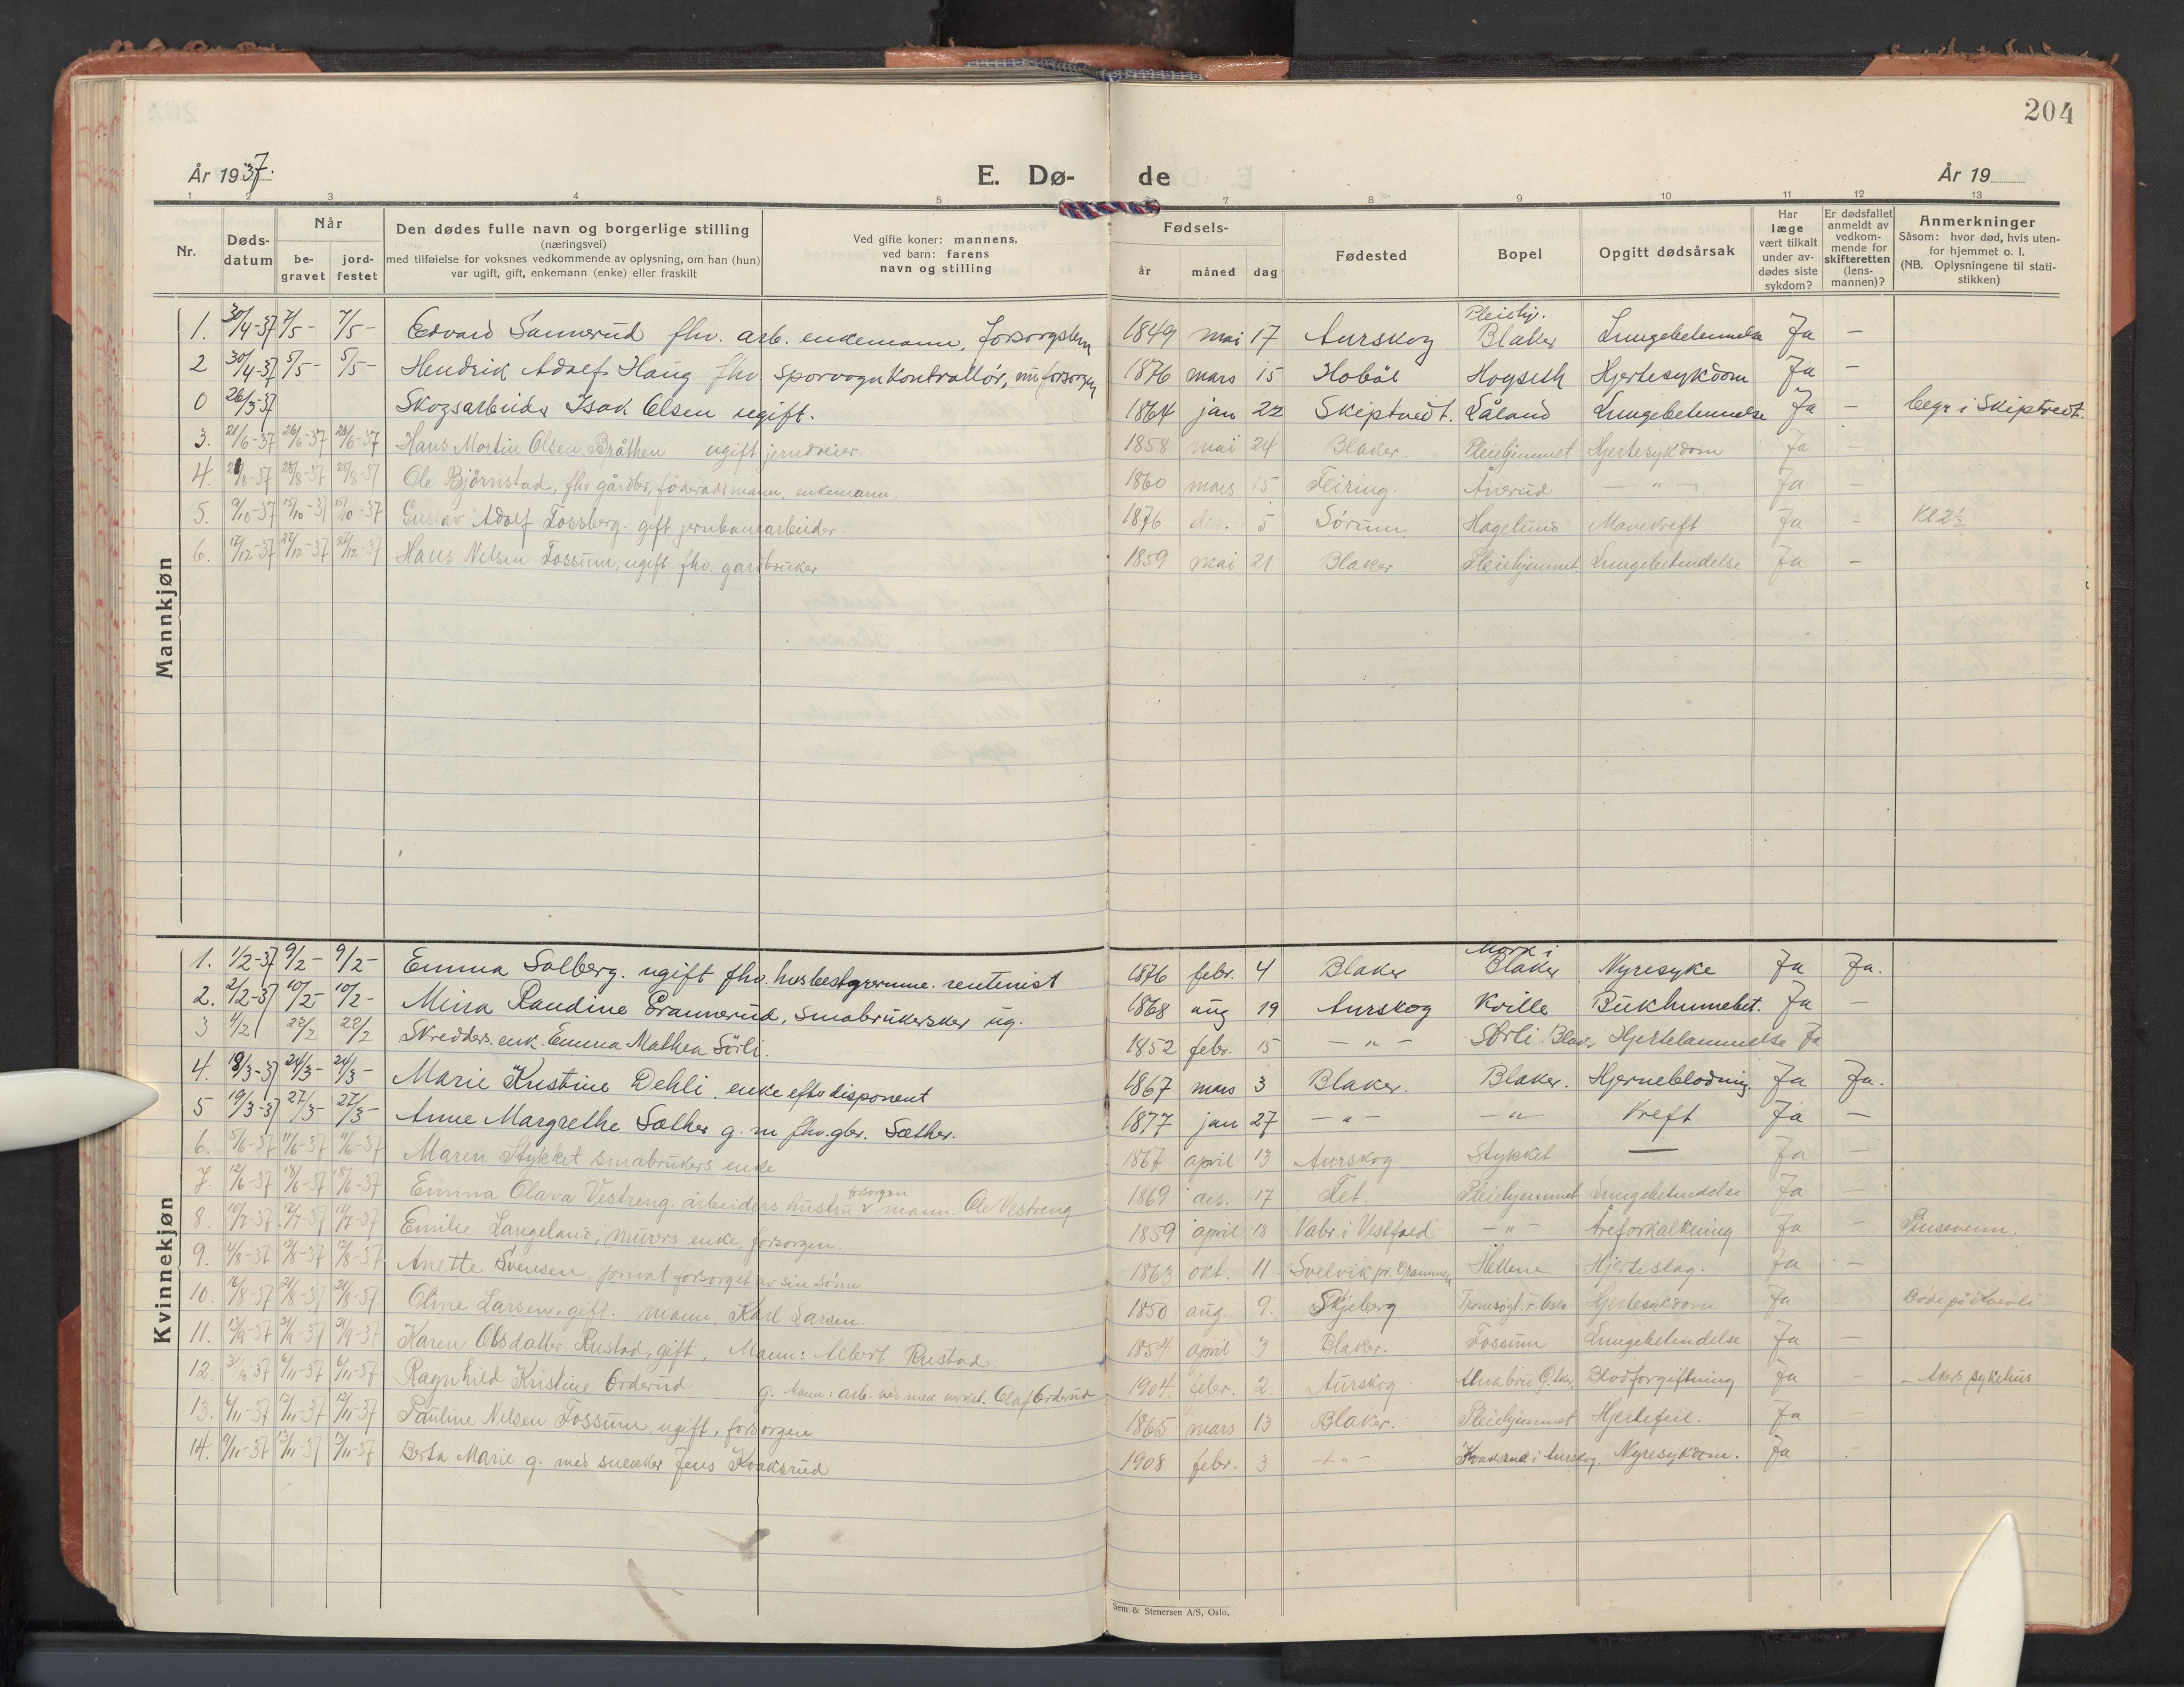 204
År 1937.
E. Dø- de
År 19
1 2 3 4 5 7 8 9 10 11 12 13
Nr. Døds-datum Når be-gravet jord-festet Den dødes fulle navn og borgerlige stilling (næringsvei) med tilføielse for voksnes vedkommende av oplysning, om han (hun) var ugift, gift, enkemann (enke) eller fraskilt Ved gifte koner: mannens, ved barn: farens navn og stilling Fødsels- år måned dag Fødested Bopel Opgitt dødsårsak Har læge vært tilkalt under av-dødes siste sykdom? Er dødsfallet anmeldt av vedkom-mende for skifteretten (lens-mannen)? Anmerkninger Såsom: hvor død, hvis uten-for hjemmet o. l. (NB. Oplysningene til stati-stikken)
Mannkjøn
1. 30/4-37 7/5- 7/5- Edvard Sannerud fhv. arb. enkemann, forsorgslem 1849 mai 17 Aurskog Pleiehj. Blaker Lungebetennelse Ja -
2 30/4-37 5/5- 5/5- Hendrik Adolf Haug fhv sporvognkontrollør, nu forsorgen 1876 mars 15 Hobøl Hogseth Hjertesykdom Ja -
0 26/3-37 Skogsarbeider Isak Olsen ugift. 1864 jan 22 Skiptvedt. Låland Lungebetennelse Ja - begr i Skiptvedt.
3. 21/6-37 26/6-37 26/6-37 Hans Martin Olsen Bråthen ugift jerndreier 1858 mai 24 Blaker. Pleiehjemmet Hjertesykdom Ja -
4. 21/8-37 28/8-37 28/8-37 Ole Björnstad, fhv gårdbr, föderadsmann, enkemann. 1860 mars 15 Feiring. Ånerud - " - Ja -
5. 9/10-37 15/10-37 15/10-37 Gustav Adolf Fossberg. gift jernbanearbeider. 1876 des. 5 Sörum Hagelund Mavekreft Ja - Kl 2½
6. 17/12-37 22/12-37 22/12-37 Hans Nilsen Fossum, ugift fhv. gardbruker 1859 mai 21 Blaker Pleiehjemmet Lungebetendelse Ja -
Kvinnekjøn
1. 1/2-37 9/2- 9/2- Emma Solberg. ugift fhv. husbestyrerinne. rentenist 1876 febr. 4 Blaker Mork i Blaker Nyresyke Ja Ja.
2. 2/2-37 10/2- 10/2- Mina Randine Grannerud, småbrukersker ug. 1868 aug 19 Aurskog Kville Bukhinnebet. Ja -
3 4/2 22/2 22/2 Skredders. enk. Emma Mathea Sörli. 1852 febr. 15 - " - Sörli Blak. Hjertelammelse Ja
4. 18/3-37 24/3- 24/3- Marie Kristine Dehli. enke efter disponent 1867 mars 3 Blaker. Blaker. Hjerneblodning. Ja Ja.
5 19/3-37 27/3- 27/3- Anne Margrethe Sæther g. m fhv. gbr. Sæther. 1877 jan 27 - " - - " - Kreft Ja -
6. 5/6-37 11/6-37 11/6-37 Maren Stykket småbrukers enke 1867 april 13 Aurskog Stykket — Ja -
7. 12/6-37 18/6-37 18/6-37 Emma Olava Vestreng. arbeiders hustru forsorgen mann. Ole Vestreng 1869 des. 17 Fet. Pleiehjemmet Lungebetendelse Ja -
8. 10/7-37 17/7-37 17/7-37 Emilie Langeland, murers enke, forsorgen. 1859 april 18 Våler i Vestfold - " - Åreforkalkning Ja - Pinsevenn.
9. 4/8-37 12/8-37 12/8-37 Anette Svensen, privat forsorget av sin sönn 1863 okt. 11 Svelvik pr. Drammen Hellene Hjerteslag. Ja -
10. 16/8-37 21/8-37 21/8-37 Oline Larsen. gift. mann, Karl Larsen. 1850 aug. 9. Skjeberg Hjertesykdom Ja -
11. 21/9-37 21/9-37 Karen Olsdatter Rustad, gift, Mann: Albert Rustad. 1854 april 3 Blaker. Fossum Lungebetendelse Ja -
12. 6/11-37 6/11-37 Ragnhild Kristine Orderud g. Mann: arb. Olaf Orderud 1904. febr. 2. Aurskog Alnabru Blodforgiftning Ja - - Akers sykehus
13. 6/11-37 12/11-37 12/11-37 Pauline Nilsen Fossum, ugift, forsorgen 1865 mars 13 Blaker. Pleiehjemmet Hjertefeil. Ja -
14. 9/11-37 13/11-37 13/11-37 Berta Marie g. med snekker Jens Kvakerud 1908 febr. 3 - " - Kvakerud i Aurskog. Nyresykdom. Ja -
Sem & Stenersen A/S, Oslo.